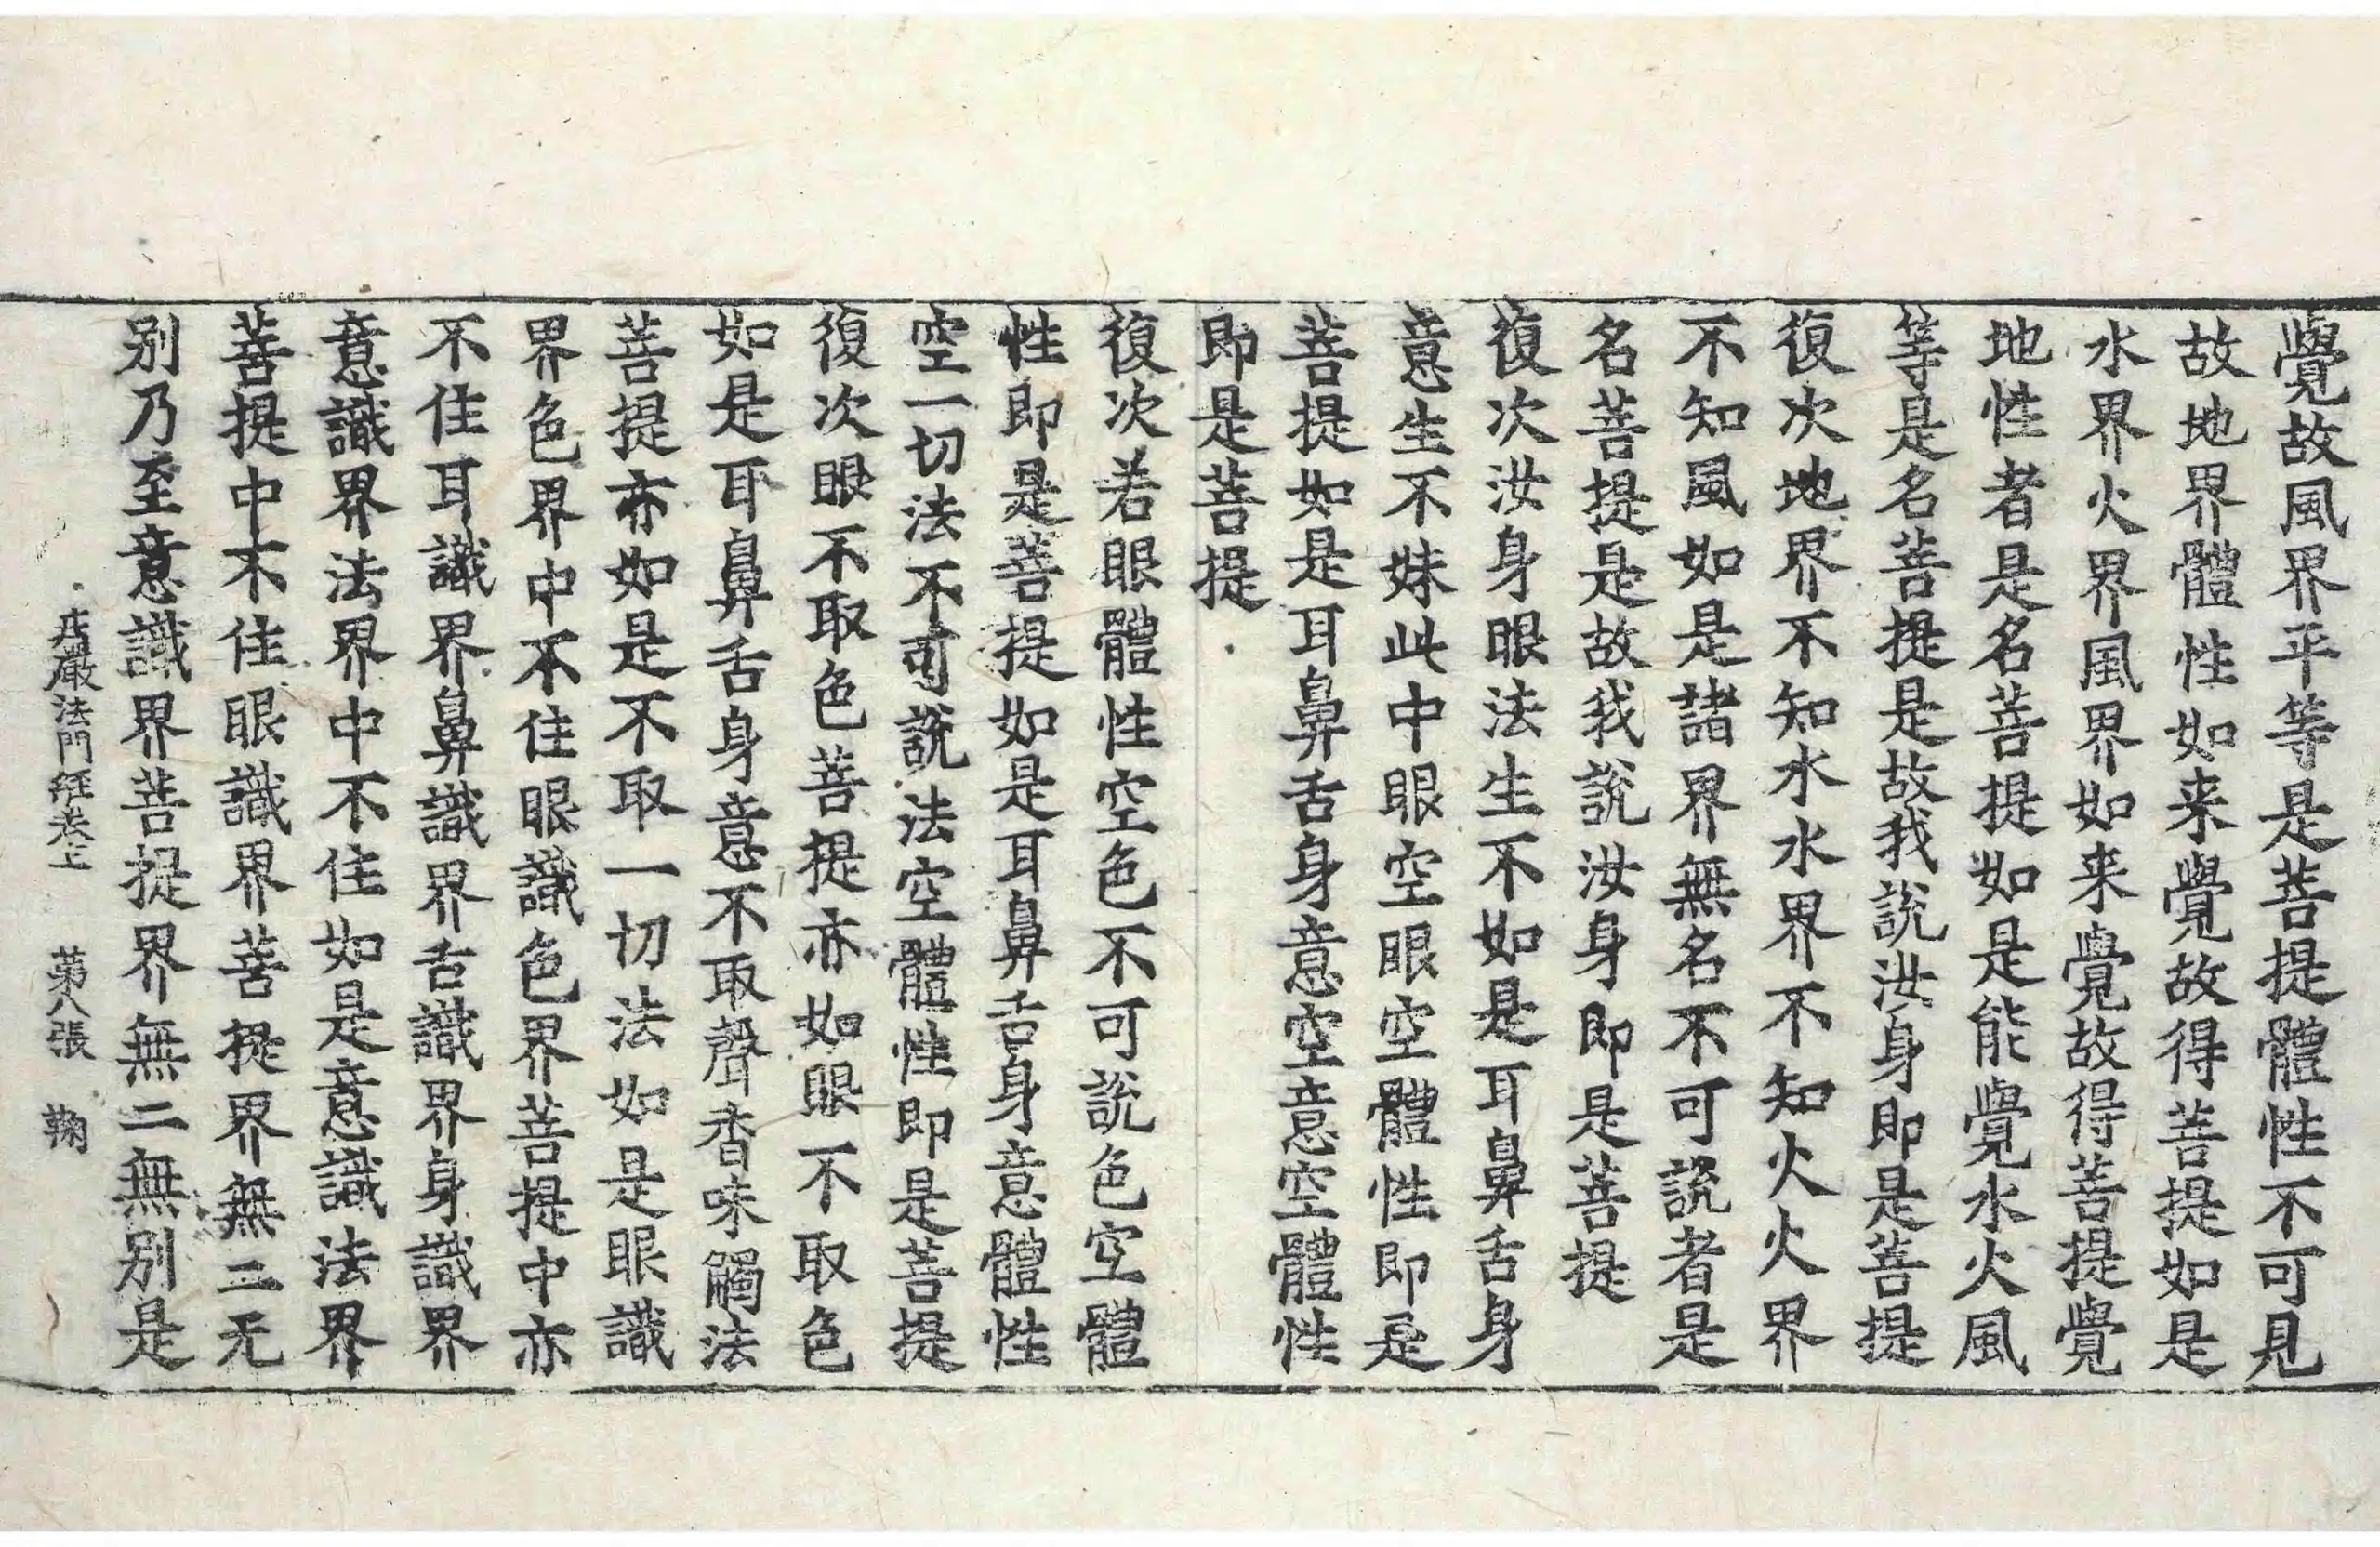 覺故風界平等是菩提體性不可見
故地界體性如来覺故得菩提如是
水界火界風界如来覺故得菩提覺
地性者是名菩提如是能覺水火風
等是名菩提是故我說汝身即是菩提
復次地界不知水水界不知火火界
不知風如是諸界無名不可說者是
名菩提是故我說汝身即是菩提
復次汝身眼法生不如是耳鼻舌身
意生不姝此中眼空眼空體性即是
菩提如是耳鼻舌身意空意空體性
即是菩提
復次若眼體性空色不可說色空體
性即是菩提如是耳鼻舌身意體性
空一切法不可說法空體性即是菩提
復次眼不取色菩提亦如眼不取色
如是耳鼻舌身意不取聲香味觸法
菩提亦如是不取一切法如是眼識
界色界中不住眼識色界菩提中亦
不住耳識界鼻識界舌識界身識界
意識界法界中不住如是意識法界
菩提中不住眼識界菩提界無二无
别乃至意識界菩提界無二無别是
莊嚴法門經卷上 第八張 鞠